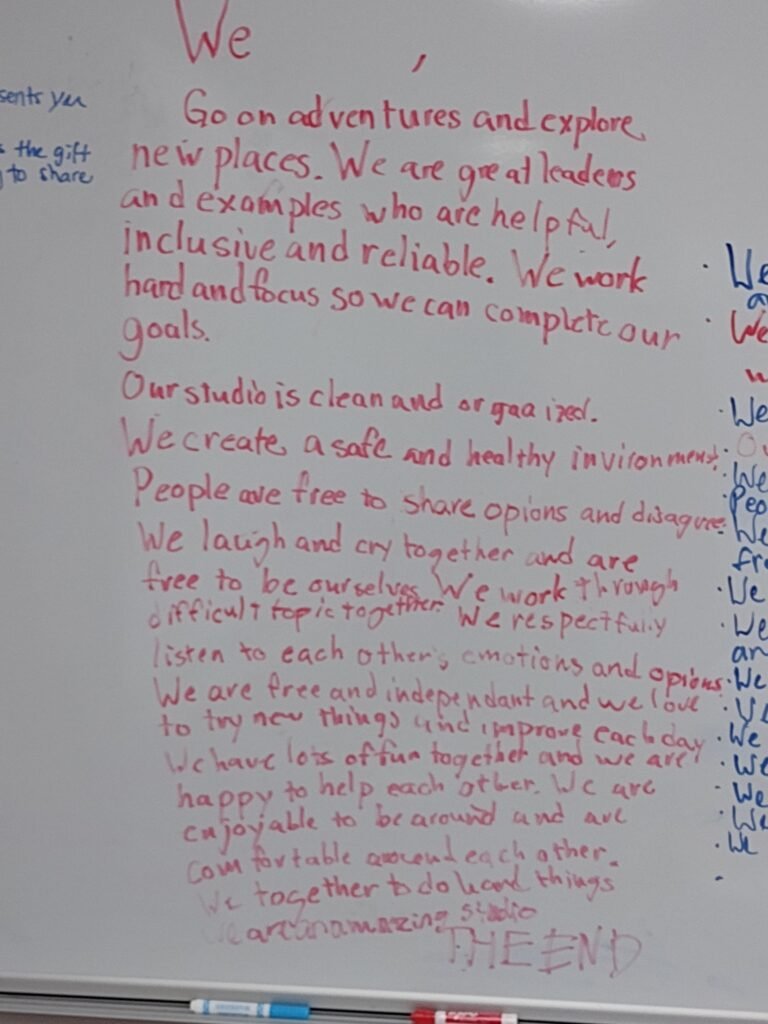 We ,
Go on adventures and explore
new places. We are great leaders
and examples who are helpful,
inclusive and reliable. We work
hard and focus so we can complete our
goals.
Our studio is clean and orgaaized.
We create a safe and healthy invironment.
People are free to share opions and disagree.
We laugh and cry together and are
free to be ourselves. We work through
difficult topic together. We respectfully
listen to each other's emotions and opions.
We are free and independant and we love
to try new things and improve each day
We have lots of fun together and we are
happy to help each other. We are
enjoyable to be around and are
comfortable around each other.
We together to do hard things
We are an amazing studio
THE END
sents you
the gift
to share
We
We
We
We
Peo
We
fre
We
We
an
We
We
We
We
We
We